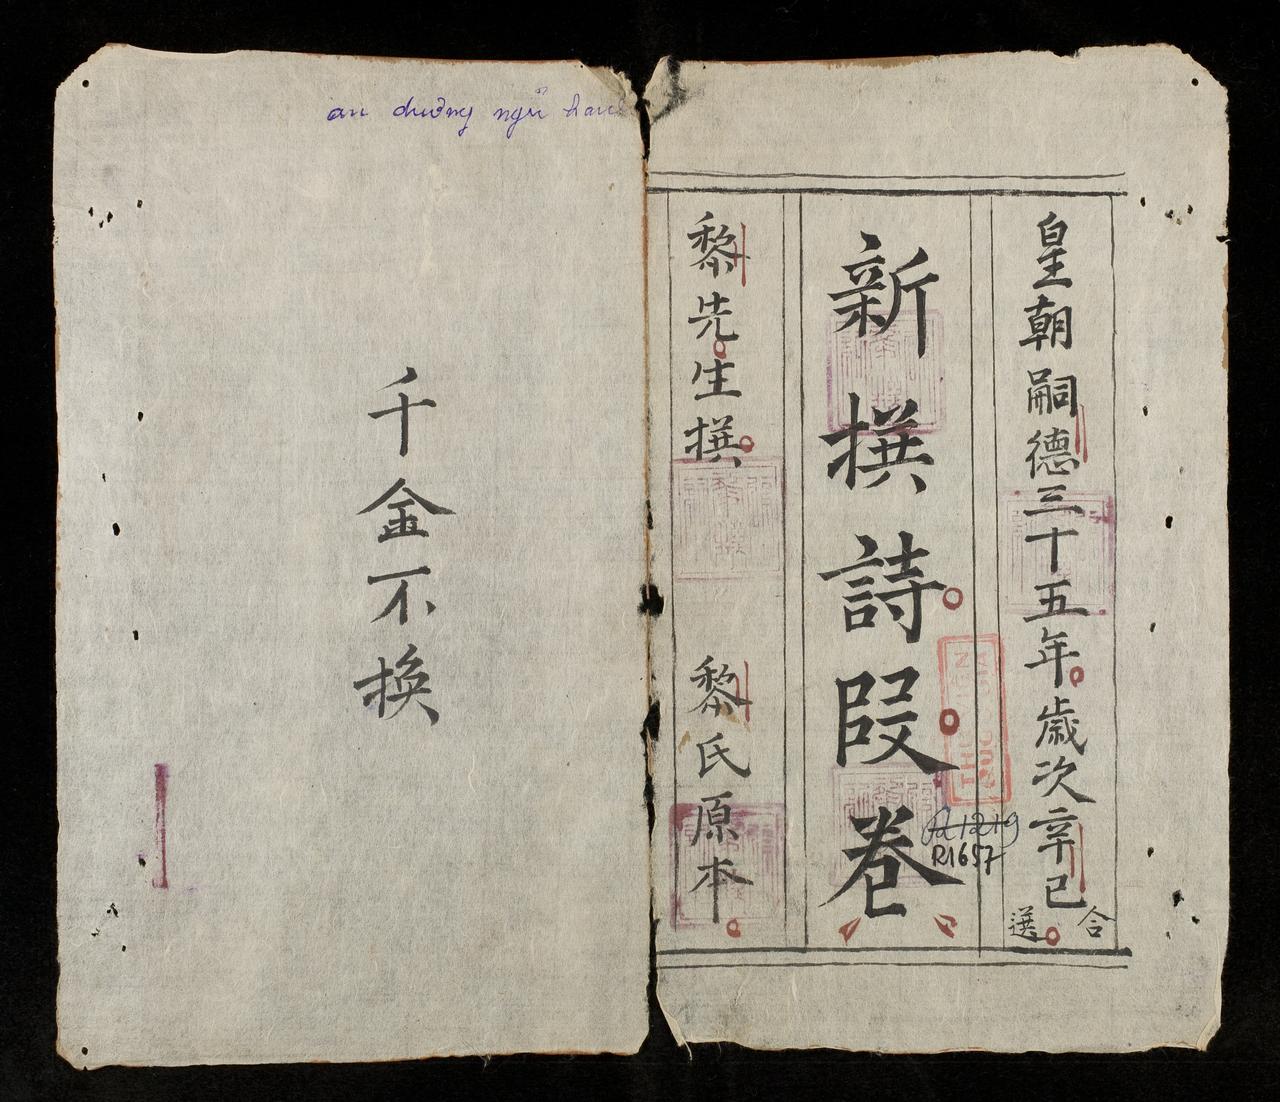 皇朝嗣德三十五年歲次辛巳
合選
新撰詩叚卷
黎先生撰
黎氏原本
R1219
R1657
an dương ngũ hành
千金不換